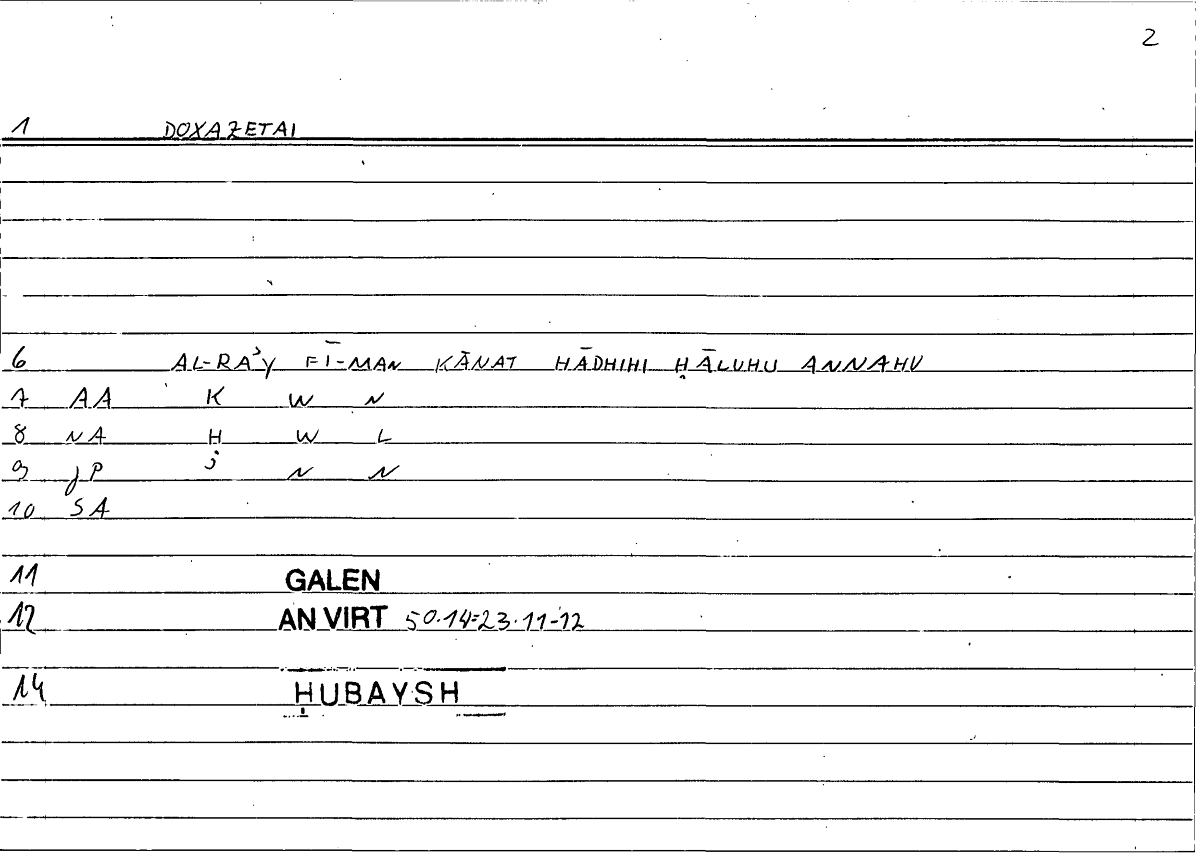 2
1 DOXAZETAI
6 AL-RAʾY FĪ-MAN KĀNAT HĀDHIHI ḤĀLUHU ANNAHU
7 AA K W N
8 NA Ḥ W L
9 JP J N N
10 SA
11 GALEN
12 AN VIRT 50.14=23.11-12
14 ḤUBAYSH